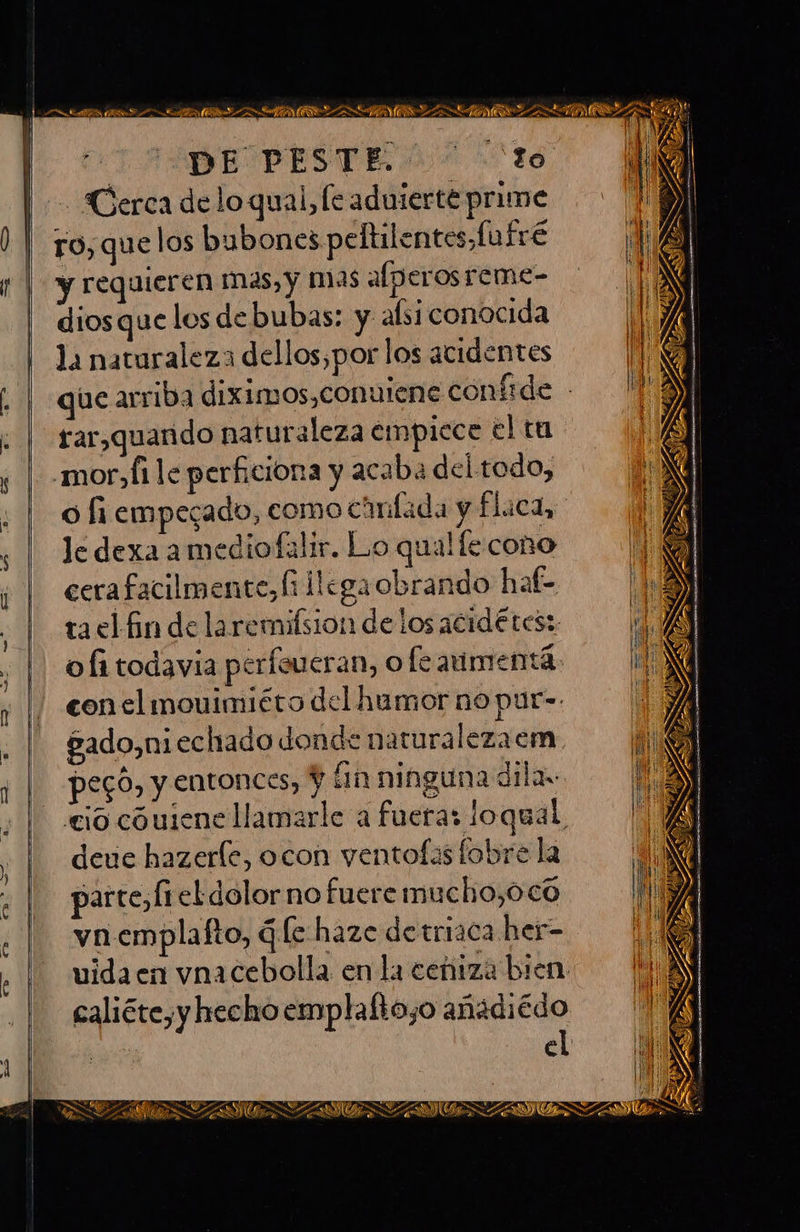 DE PESTE. 10
Cerca de lo qual, ſe aduierte prime
ro, que los bubones peſtilentes, ſufrē
y requieren mas, y mas aſperos reme-
dios que los de bubas: y aſsi conocida
la naturaleza dellos, por los acidentes
que arriba diximos, conuiene conſide
rar, quando naturaleza empiece el tu
mor, ſi le perficiona y acaba del todo,
o ſi empeçado, como cãnſada y flaca,
le dexa a medio ſalir. Lo qual ſe cono
cera facilmente, ſi llega obrando haſ-
ta el fin de la remiſsion de los acidētes:
o ſi todavia perſeueran, o ſe aumentā
con el mouimiēto del humor no pur-
gado, ni echado donde naturaleza em
peçò, y entonces, y ſin ninguna dila-
ciō cōuiene llamarle a fuera: lo qual
deue hazerſe, o con ventoſas ſobre la
parte, ſi el dolor no fuere mucho, o cō
vn emplaſto, q̄ ſe haze de triaca her-
uida en vna cebolla en la ceniza bien
caliēte, y hecho emplaſto, o añadiēdo
el